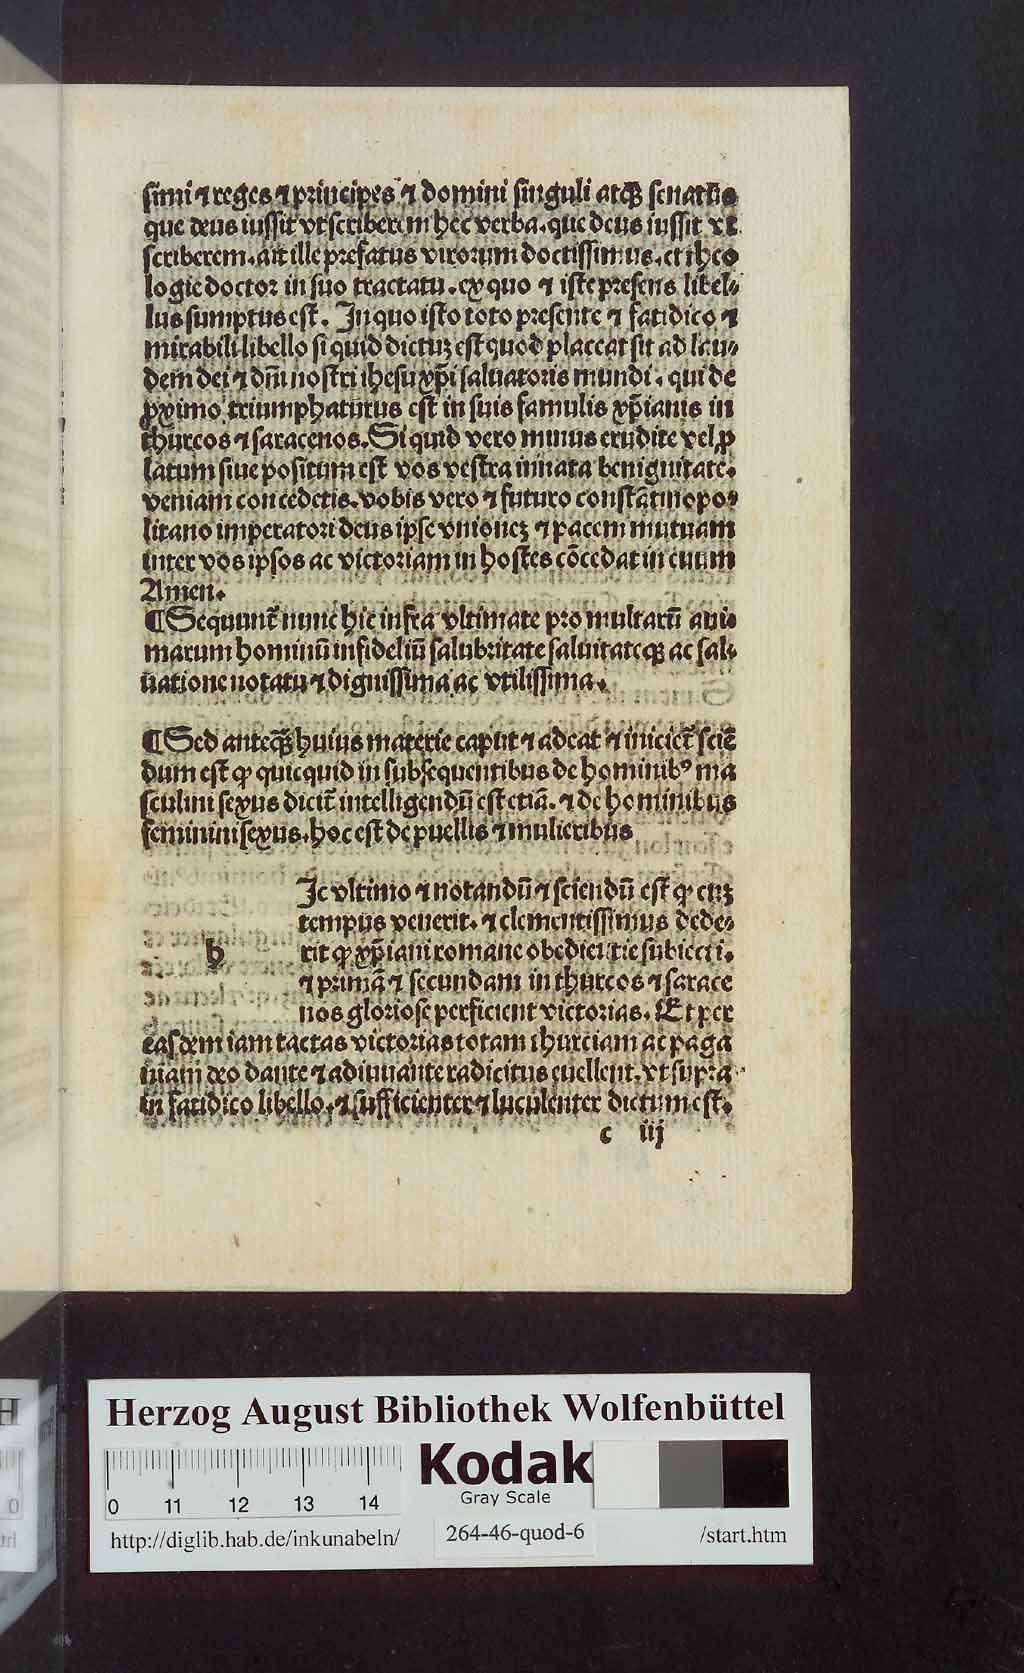 simi ⁊ reges ⁊ principes ⁊ domini singuli atqꝫ senatus
que deus iussit vt scriberem hec verba. que deus iussit vt
scriberem. ait ille prefatus virorum doctissimus. et theo
logie doctor in suo tractatu. ex quo ⁊ iste presens libel⸗
lus sumptus est. In quo isto toto presente ⁊ fatidico ⁊
mirabili libello si quid dictuꝫ est quod placeat sit ad lau⸗
dem dei ⁊ dn̄i nostri ihesu xp̄i saluatoris mundi. qui de
ꝓximo triumphaturus est in suis famulis xp̄ianis in
thurcos ⁊ saracenos. Si quid vero minus erudite vel ꝓ
latum siue positum est vos vestra innata benignitate.
veniam concedetis. vobis vero ⁊ futuro constātinopo⸗
litano imperatori deus ipse vnioneꝫ ⁊ pacem mutuam
inter vos ipsos ac victoriam in hostes cōcedat in euum
Amen.
¶ Sequunt̄ nunc hic infra vltimate pro multarū ani⸗
marum hominū infideliū salubritate saluitateqꝫ ac sal⸗
uatione notatu ⁊ dignissima ac vtilissima.
¶ Sed anteqꝫ huius materie caput ⁊ adeat ⁊ iniciet̄ sciē
dum est ꝙ quicquid in subsequentibus de hominibꝰ ma
sculini sexus dicit̄ intelligendū est etiā. ⁊ de hominibus
feminini sexus. hoc est de puellis ⁊ mulieribus
h
Ic vltimo ⁊ notandū ⁊ sciendū est ꝙ cuꝫ
tempus venerit. ⁊ clementissimus dede⸗
rit ꝙ xp̄iani romane obedientie subiecti.
⁊ primā ⁊ secundam in thurcos ⁊ sarace
nos gloriose perficient victorias. Et per
easdem iam tactas victorias totam thurciam ac paga
niam deo dante ⁊ adiuuante radicitus euellent. vt supra
in fatidico libello. ⁊ sufficienter ⁊ luculenter dictum est.
c iij
Herzog August Bibliothek Wolfenbüttel
0 11 12 13 14
Kodak
Gray Scale
http://diglib.hab.de/inkunabeln/
264-46-quod-6
/start.htm